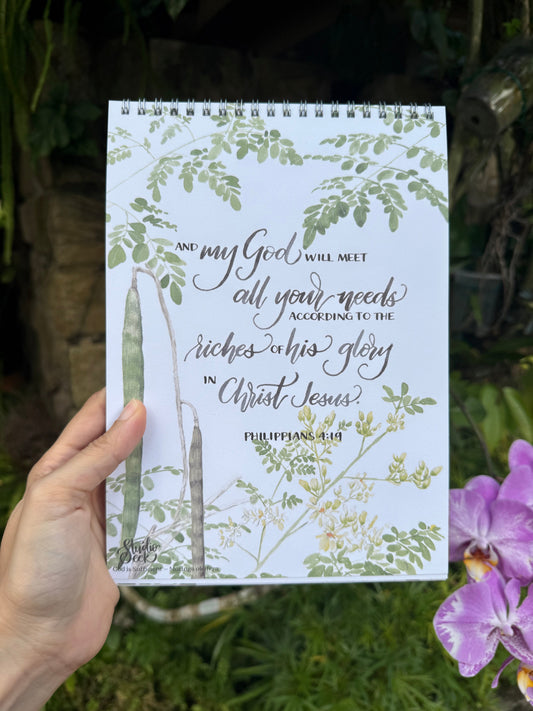 AND my God WILL MEET
all your needs
ACCORDING TO THE
riches OF his glory
IN Christ Jesus.
PHILIPPIANS 4:19
Studio
God is Sufficient – Moringa oleifera